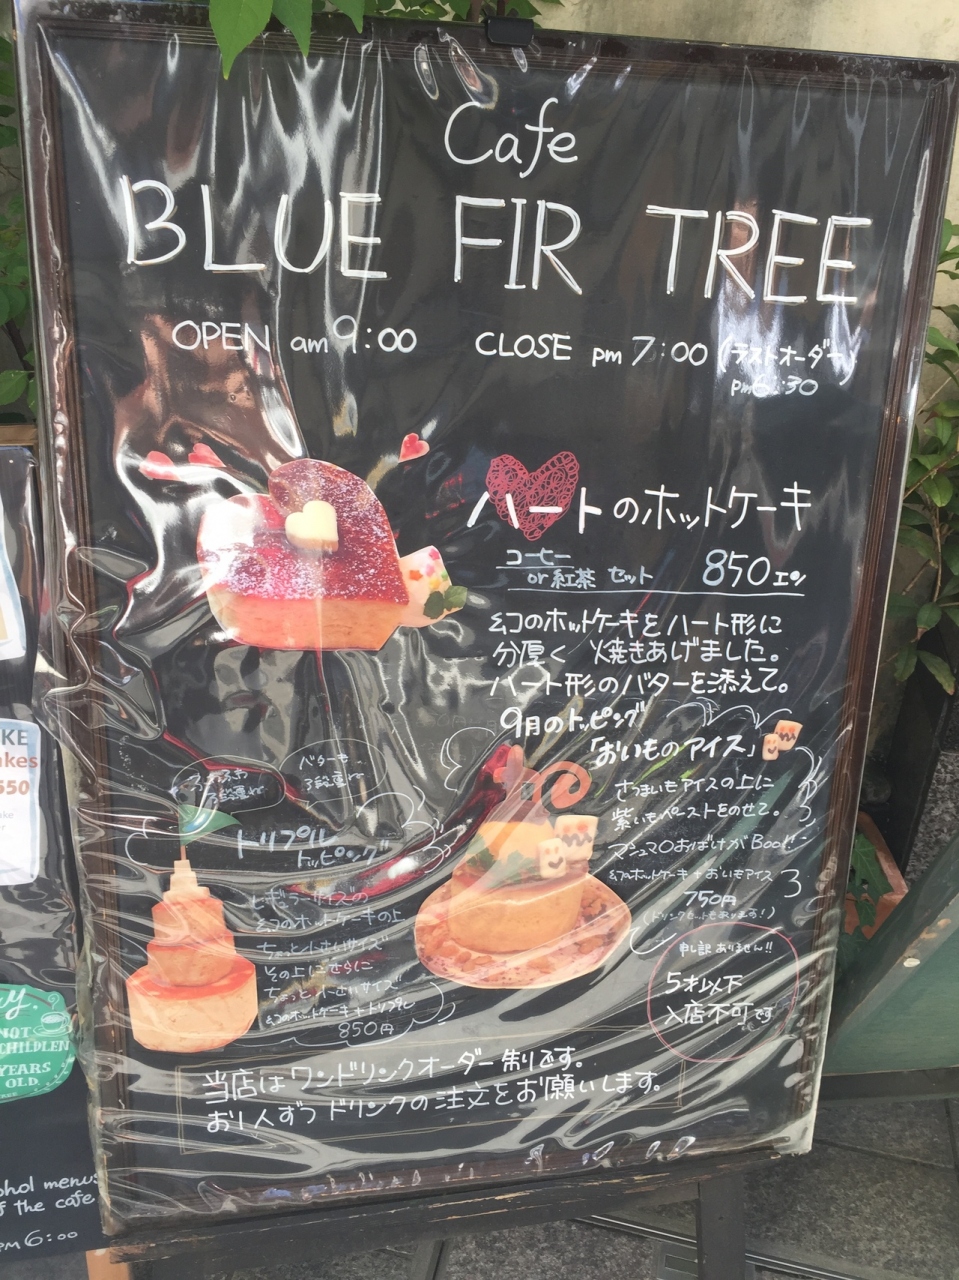 Cafe
BLUE FIR TREE
OPEN am 9:00 CLOSE pm 7:00 (ラストオーダー)
pm6:30
ハートのホットケーキ
コーヒー
or 紅茶 セット 850エン
幻のホットケーキをハート形に
分厚く 焼きあげました。
ハート形のバターを添えて。
9月のトッピング
「おいものアイス」
さつまいもアイスの上に
紫いもペーストをのせて。
マシュマロおばけがBoo!!
幻のホットケーキ+おいもアイス
750円
(ドリンクセットもあります!)
バターも
3段重ね
3段重ね
トリプル
トッピング
レギュラーサイズの
幻のホットケーキの上
ちょっと小さいサイズ
その上にさらに
ちょっと小さいサイズ
幻のホットケーキ+トリプル
850円
申し訳ありません!!
5才以下
入店不可です
当店はワンドリンクオーダー制です。
お1人ずつドリンクの注文をお願いします。
KE
akes
550
NOT
CHILDLEN
YEARS
OLD
ohol menu
f the cafe
PM 6:00